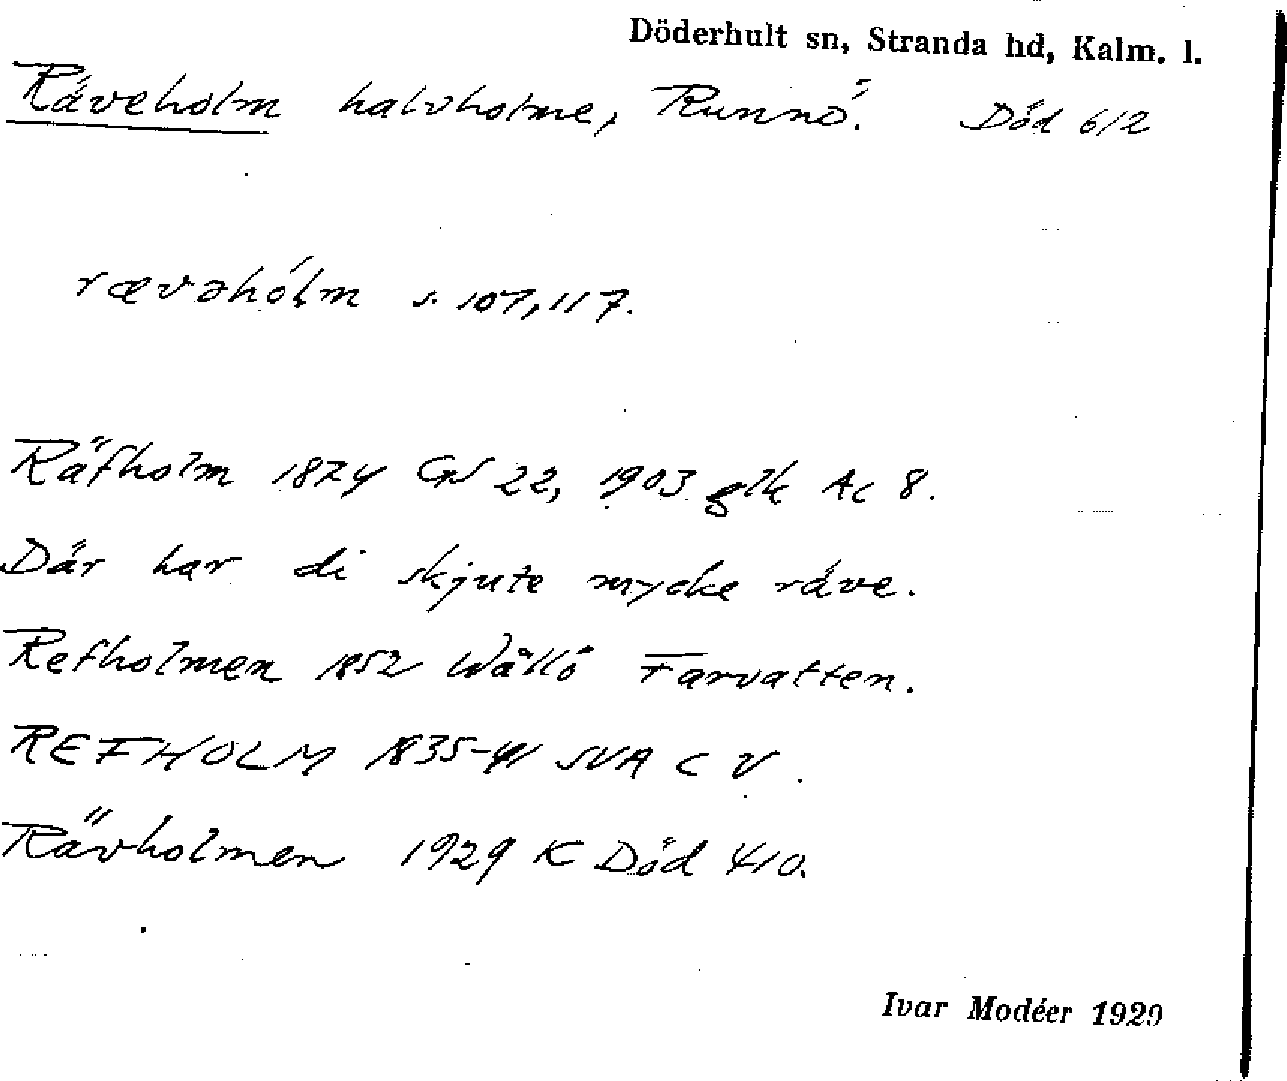 Döderhult sn, Stranda hd, Kalm. l.
Räveholm halvholme, Runnö. Död 612
rævəhólm s. 107, 117.
Räfholm 1874 GS 22, 1903 glk Ac 8.
Där har di skjute mycke räve.
Refholmen 1852 Wållö Farvatten.
REFHOLM 1835-41 SVA C V.
Rävholmen 1929 K Död 410.
Ivar Modéer 1929